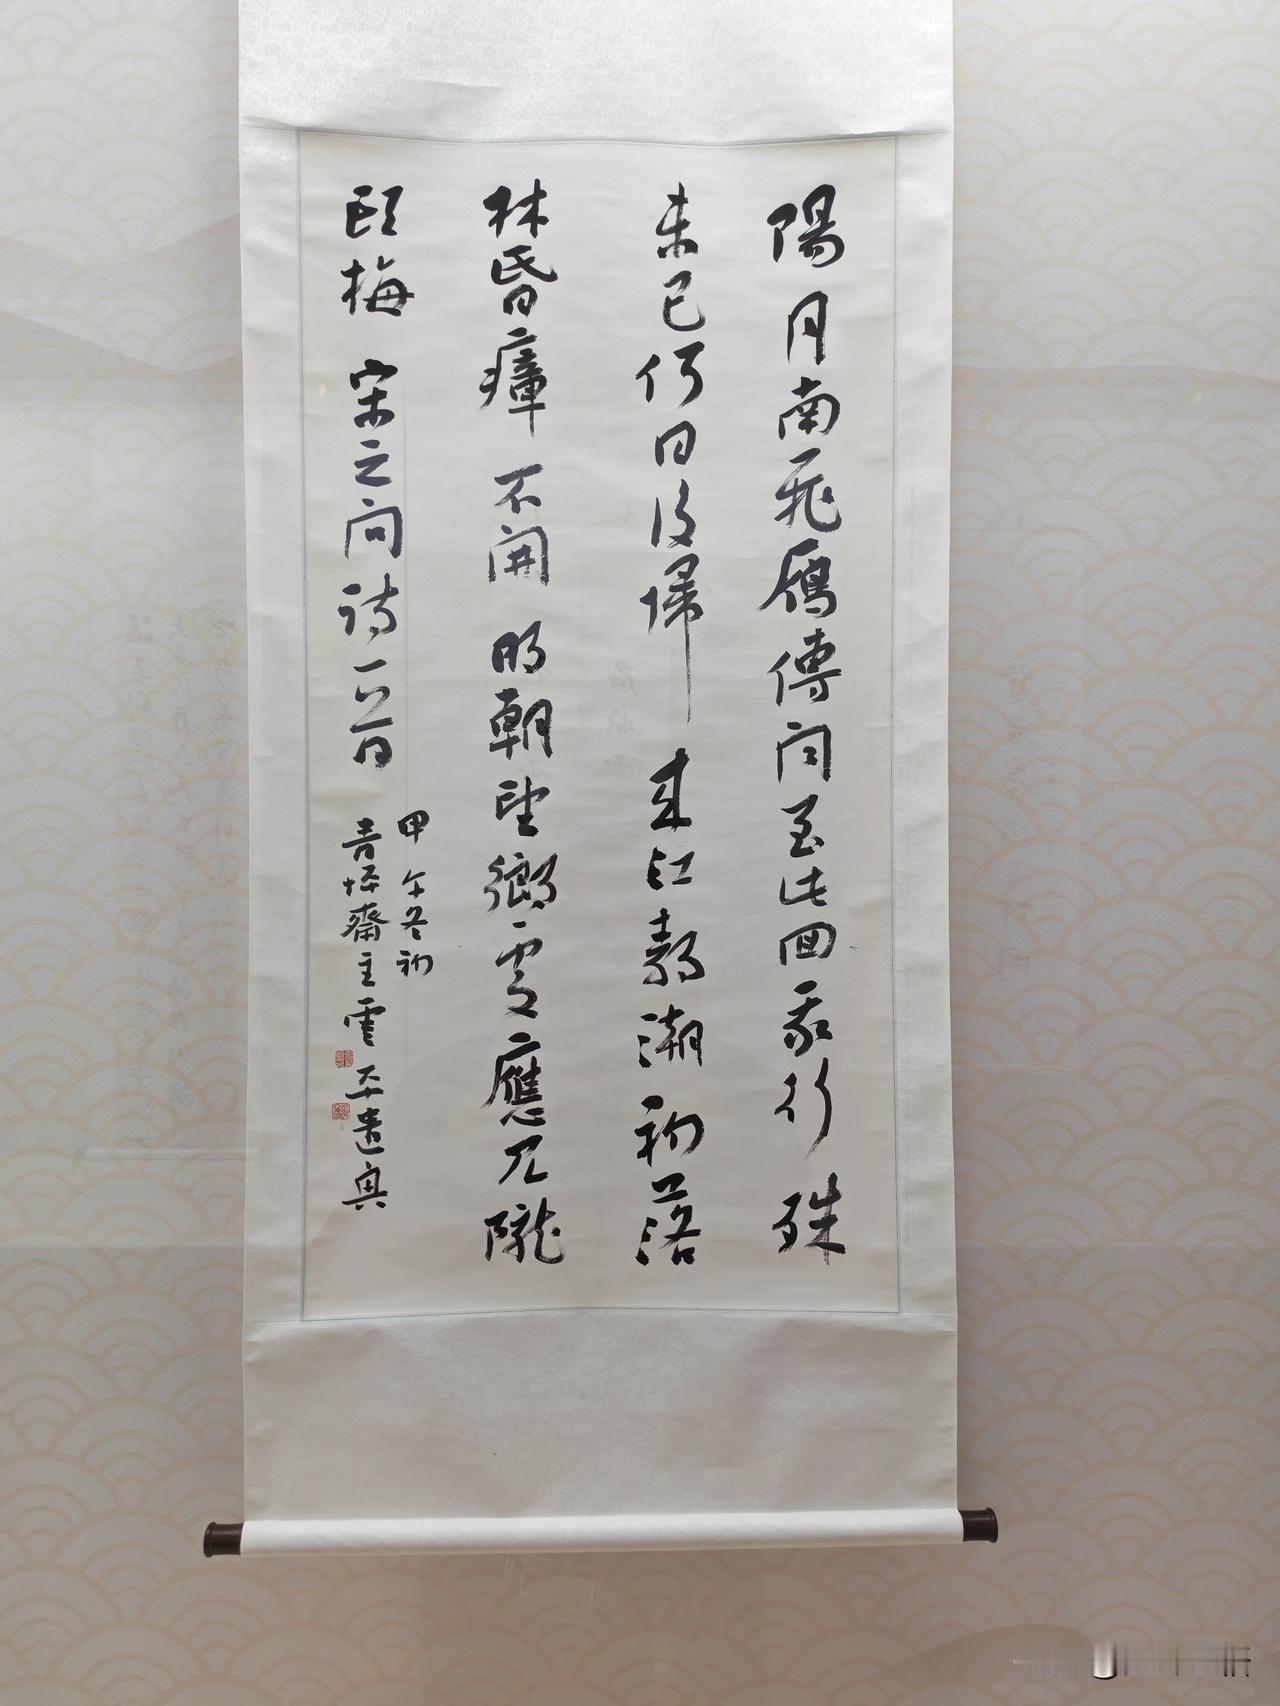 陽月南飛鴈傳聞至此回我行殊
未已何日復歸來江靜潮初落
林昏瘴不開明朝望鄉處應見隴
頭梅 宋之問詩一首
甲午冬初
齋主雲